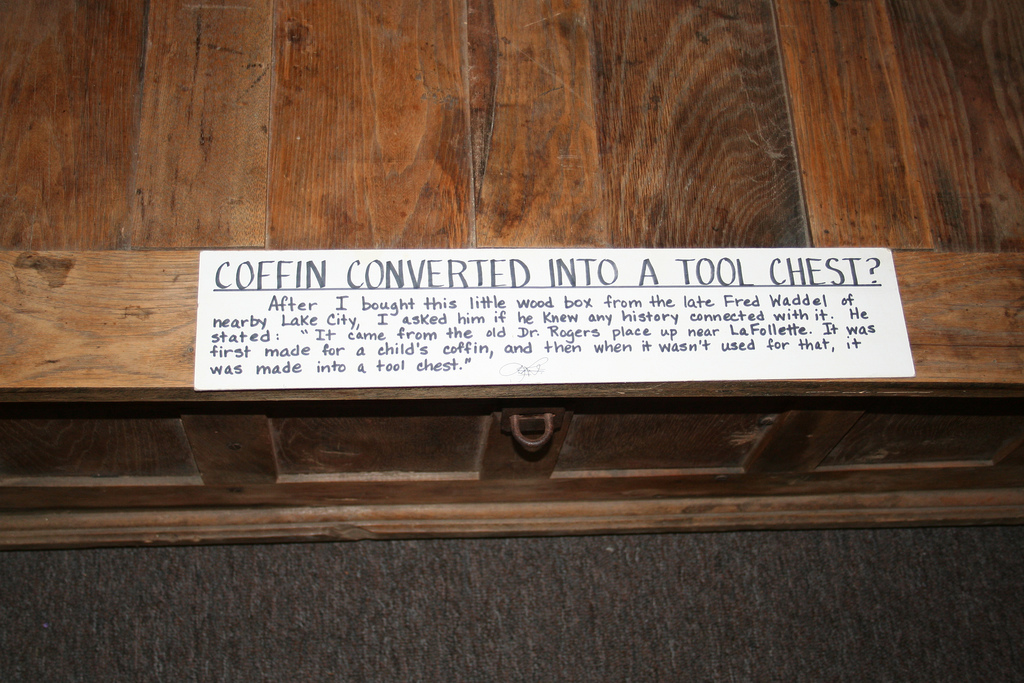 COFFIN CONVERTED INTO A TOOL CHEST?
After I bought this little wood box from the late Fred Waddel of
nearby Lake City, I asked him if he knew any history connected with it. He
stated: "It came from the old Dr. Rogers place up near LaFollette. It was
first made for a child's coffin, and then when it wasn't used for that, it
was made into a tool chest."